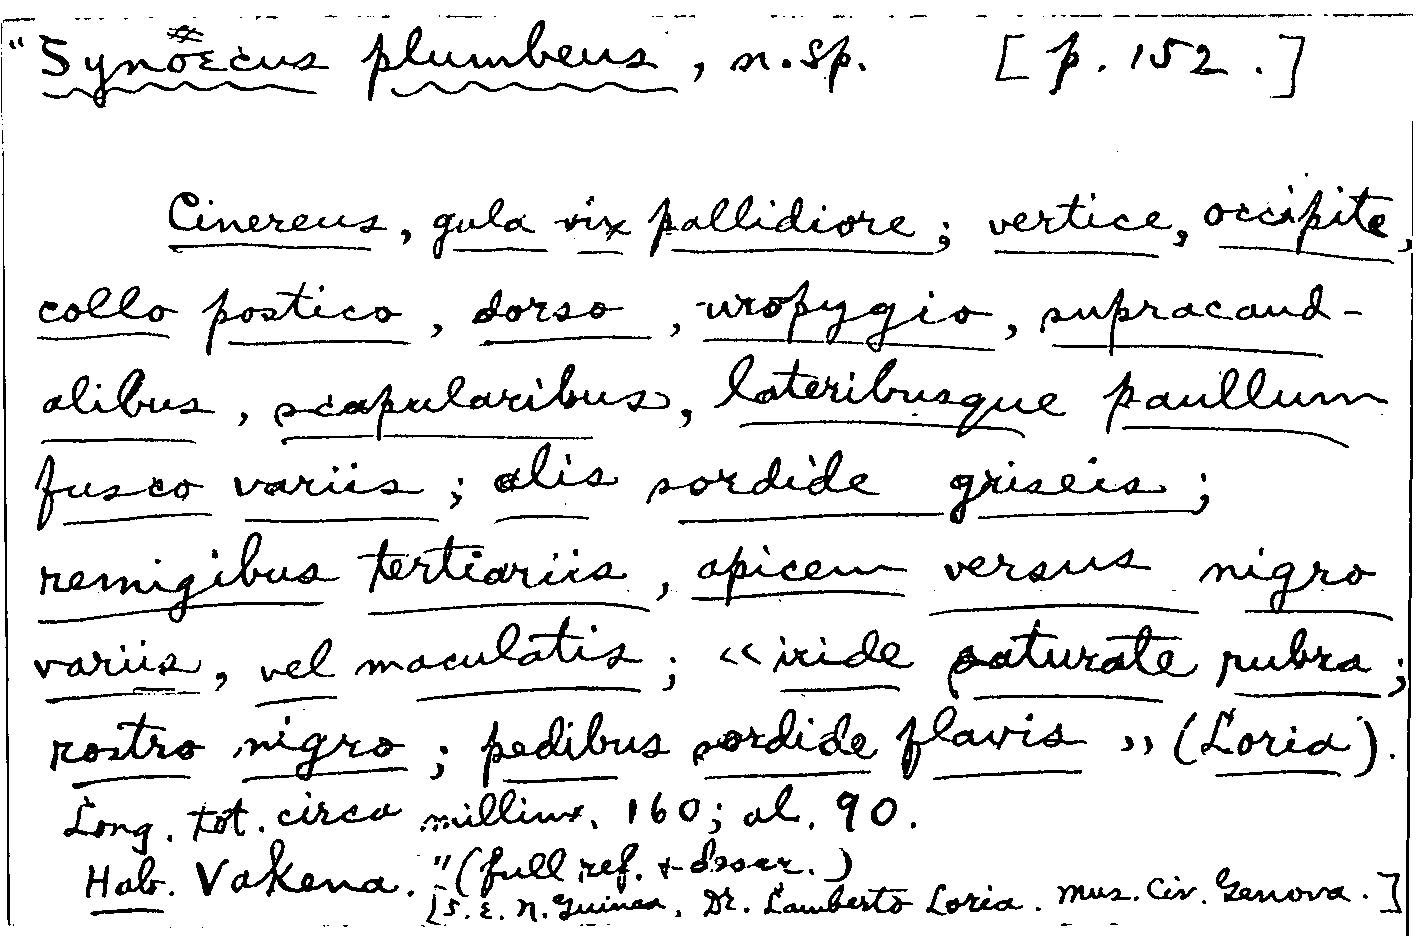 "Synöecus plumbeus, n.sp. [p. 152.]
Cinereus, gula vix pallidiore; vertice, occipite,
collo postico, dorso, uropygio, supracaud-
alibus, scapularibus, lateribusque paullum
fusco variis; alis sordide griseis;
remigibus tertiariis, apicem versus nigro
variis, vel maculatis; «iride saturate rubra;
rostro nigro; pedibus sordide flavis» (Loria).
Long. tot. circa millim. 160; al. 90.
Hab. Vakena." (full ref. + descr.)
[S.E. N. Guinea, Dr. Lamberto Loria. Mus. Civ. Genova.]